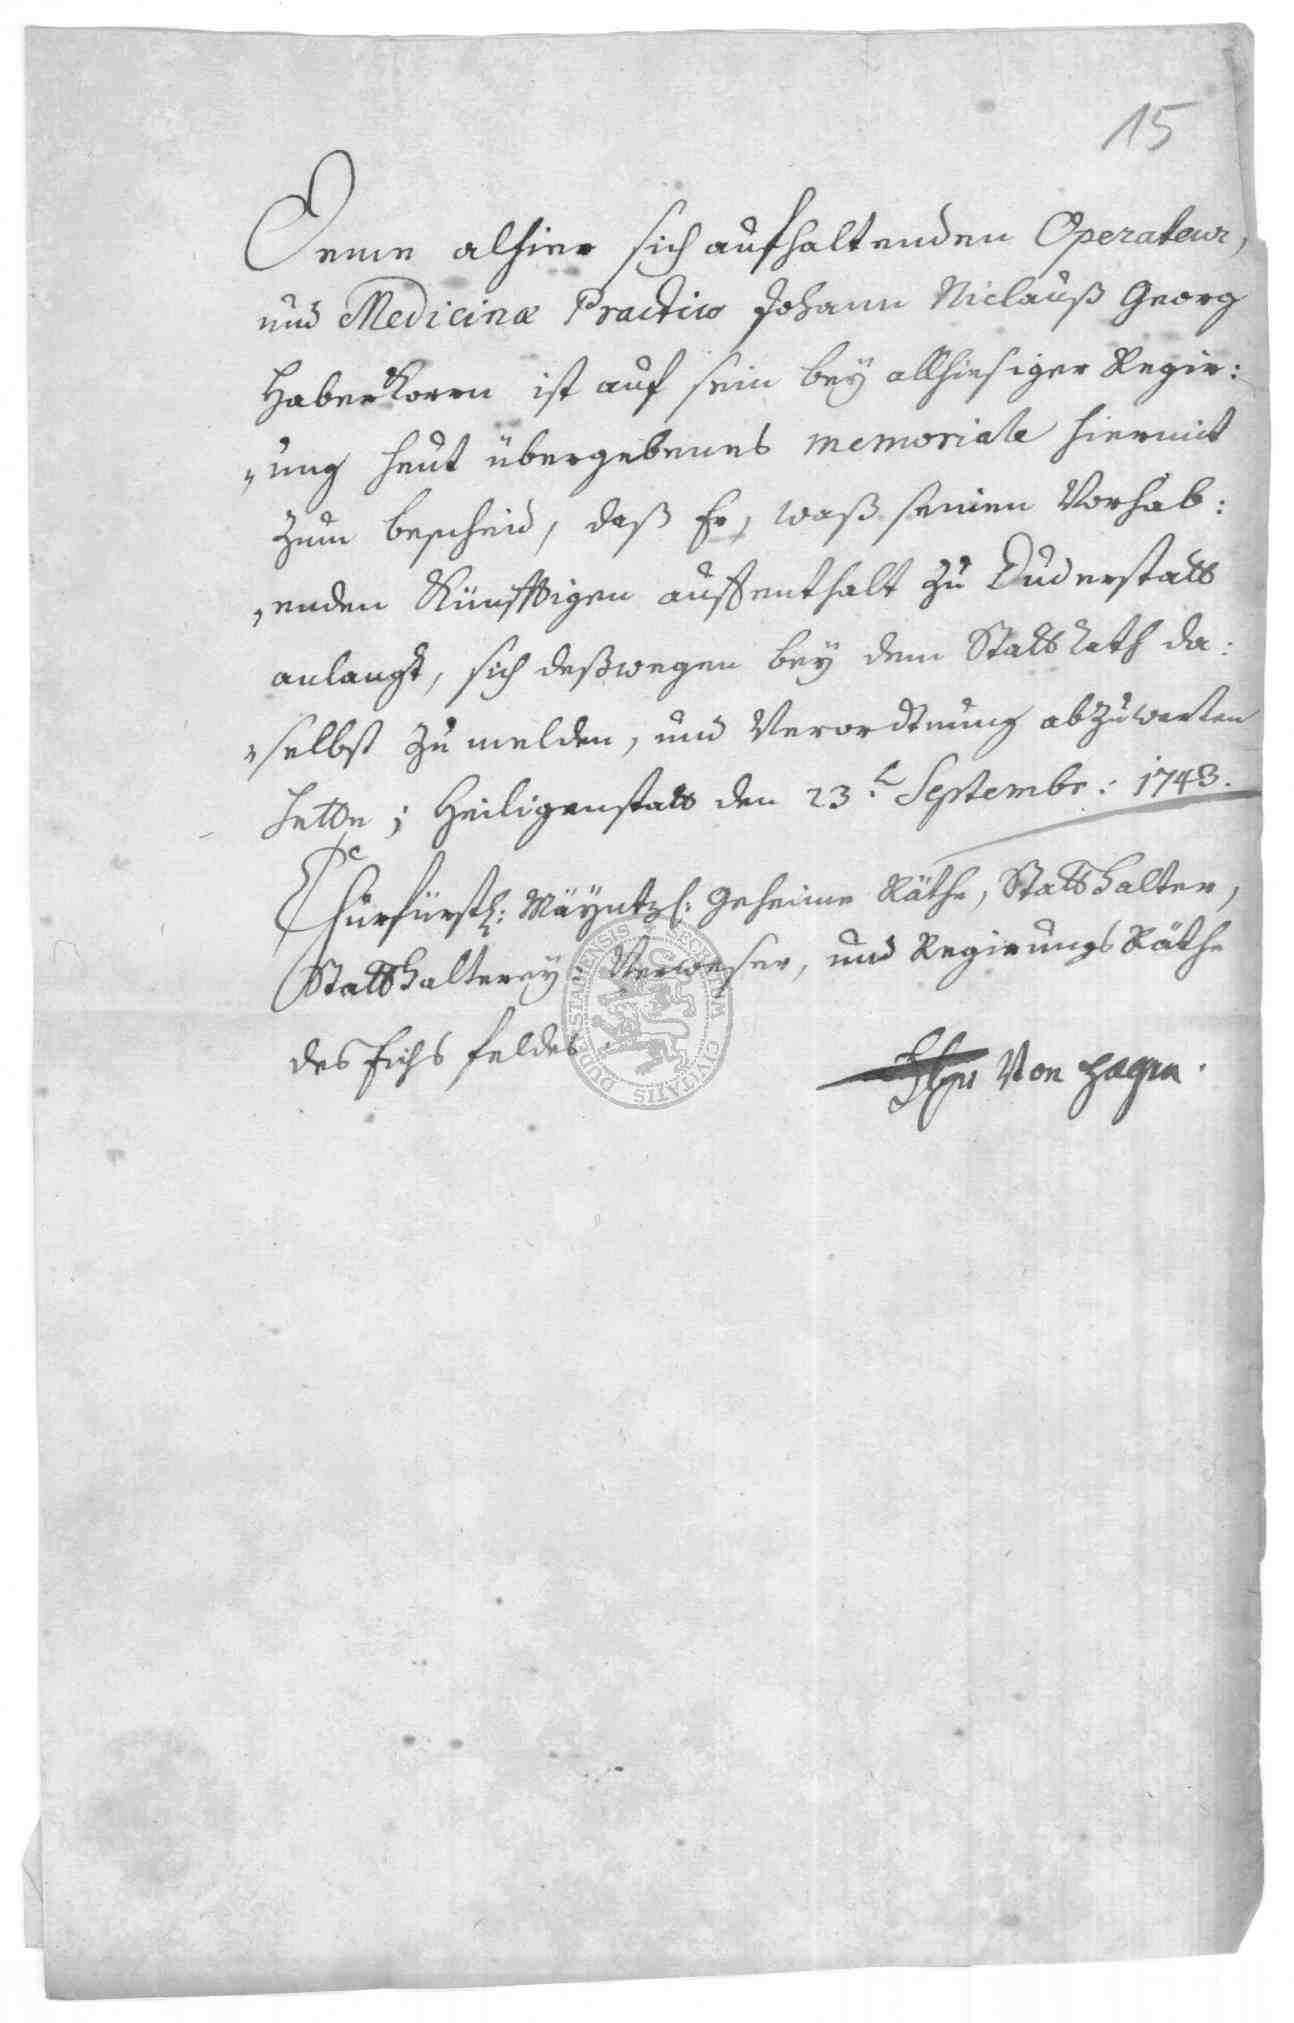 15
Deme alhier sich aufhaltenden Operateur,
und Medicinæ Practico Johann Niclauß Georg
Haberkorn ist auf sein bey allhiesiger Regir:
„ung heut übergebenes memoriale hiermit
zum bescheid, daß Er, waß seinen Vorhab:
„enden Künfftigen auffenthalt zu Duderstatt
anlangt, sich deßwegen bey dem Statt Rath da:
„selbst zu melden, und Verordtnung abzuwarten
hette; Heiligenstatt den 23t Septembr: 1743.
Churfürstl: Mäyntzl: Geheime Räthe, Statthalter,
Statthalterey Verweser, und Regirungs Räthe
des Eichsfeldes
Von Hagen.
SECRETUM CIVITATIS DUDERSTADIENSIS